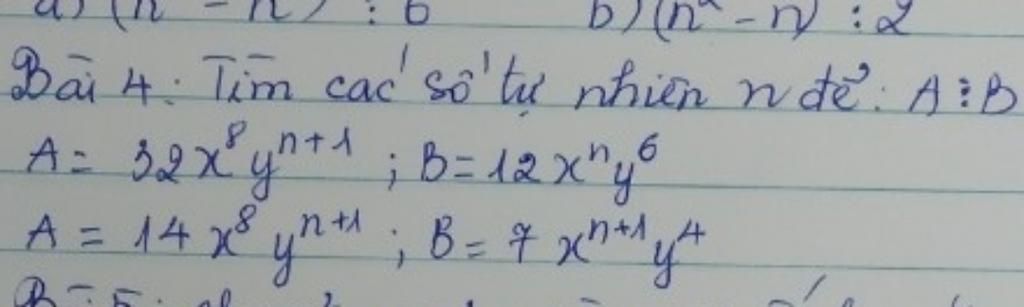 a) (n - n) : 6 b) (n² - n) : 2
Bài 4: Tìm các số tự nhiên n để: A⋮B
A = 32x⁸yⁿ⁺¹ ; B = 12xⁿy⁶
A = 14x⁸yⁿ⁺¹ ; B = 7xⁿ⁺¹y⁴